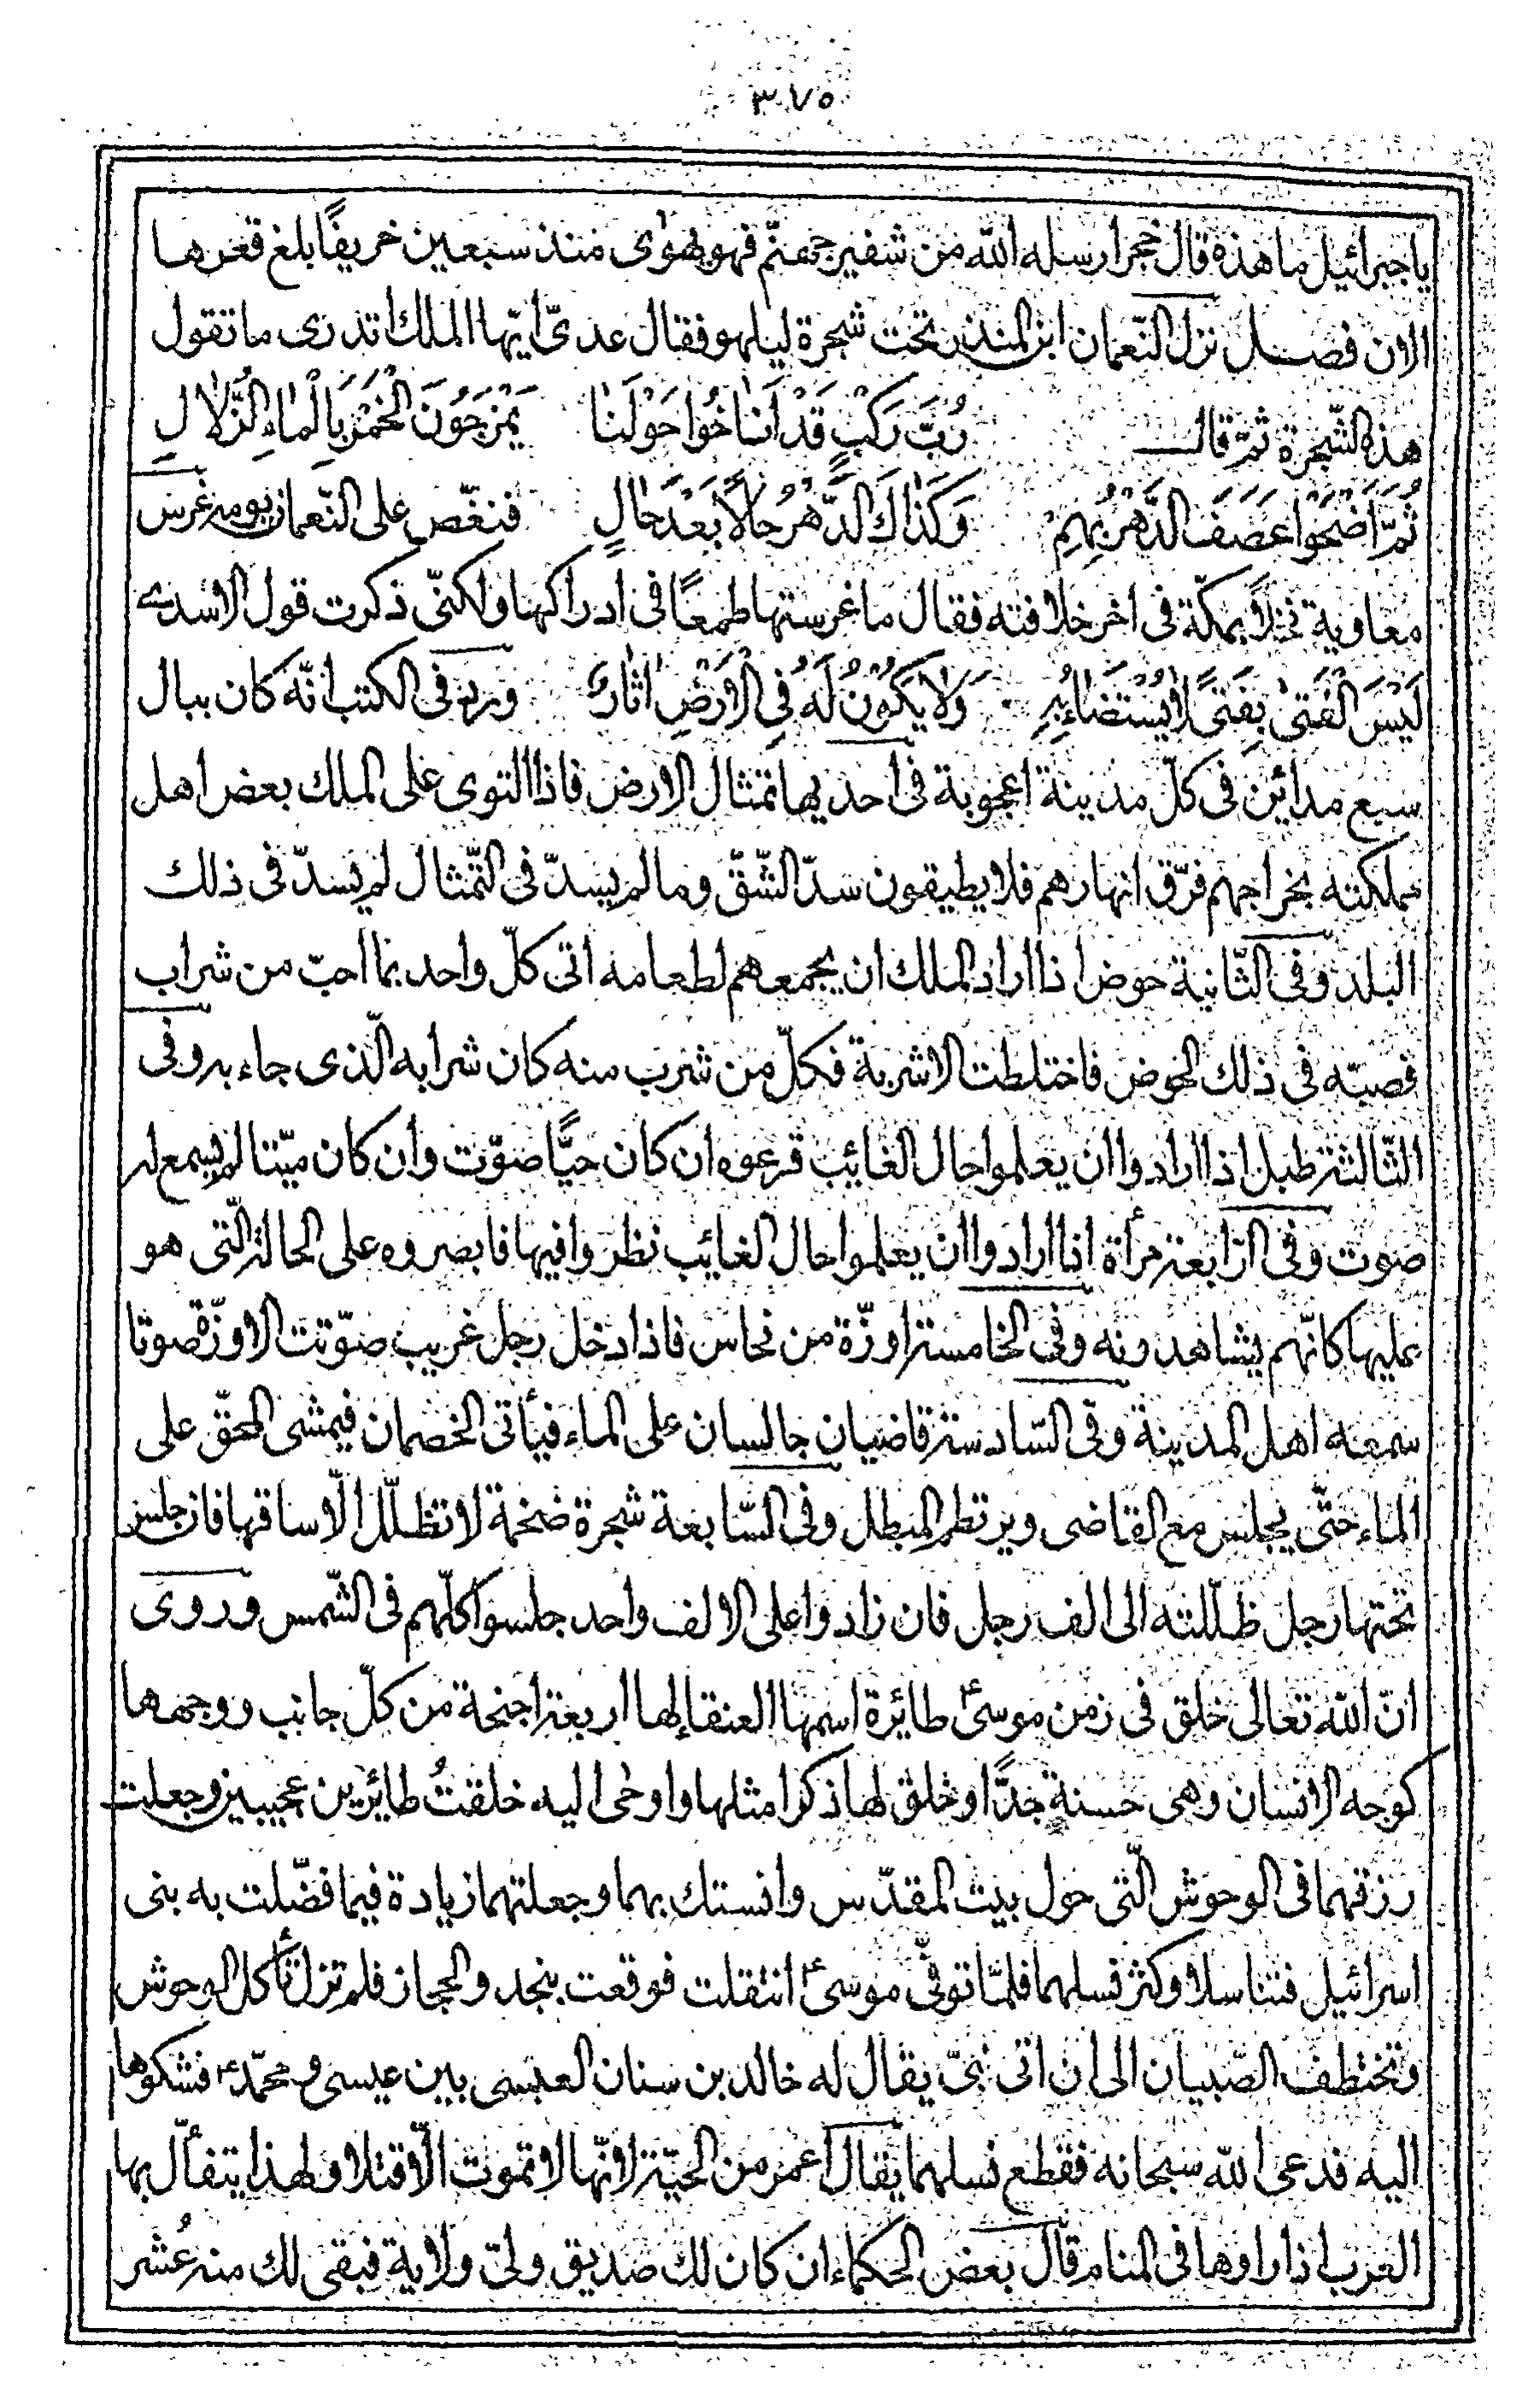 ٣٧٥
يا جبرائيل ما هذة قال حجر ارسله الله من شفير جهنّم فهو يهوى منذ سبعين خريفًا بلغ قعرها
الان فصل نزل النّعمان ابن المنذر تحت شجرة ليلهو فقال عدىّ ايّها الملك اتدرى ما تقول
هذه الشّجرة ثمّ قال رُبَّ رَكْبٍ قَدْ اَناخُوا حَوْلَنا يَمْزِجُونَ الْخَمْرَ بِالْماءِ الزُّلالِ
ثُمَّ اَضْحَوْا عَصَفَ الدَّهْرُ بِهِمْ وَكَذاكَ الدَّهْرُ حالاً بَعْدَ حالٍ فنغّص على النّعمان يومه غرس
معاوية نخلاً بمكّة فى اخر خلافته فقال ما غرستها طمعًا فى ادراكها ولكنّى ذكرت قول الاسدى
لَيْسَ الْفَتى بِفَتىً لا يُسْتَضاءُ بِهِ وَلا يَكُونُ لَهُ فِى الْاَرْضِ اثارُ ورد فى الكتب انّه كان ببابل
سبع مدائن فى كلّ مدينة اعجوبة فى احديها تمثال الارض فاذا التوى على الملك بعض اهل
مملكته بخراجهم فرّق انهارهم فلا يطيقون سدّ الشّقّ وما لم يسدّ فى التّمثال لم يسدّ فى ذلك
البلد وفى الثّانية حوض اذا اراد الملك ان يجمعهم لطعامه اتى كلّ واحد بما احبّ من شراب
فصبّه فى ذلك الحوض فاختلطت الاشربة فكلّ من شرب منه كان شرابه الّذى جاء به وفى
الثّالثة طبل اذا ارادوا ان يعلموا حال الغائب قرعوه ان كان حيًّا صوّت وان كان ميّتا لم يسمع له
صوت وفى الرّابعة مرأة اذا ارادوا ان يعلموا حال الغائب نظروا فيها فابصروه على الحالة الّتى هو
عليها كانّهم يشاهدونه وفى الخامسة اوزّة من نحاس فاذا دخل رجل غريب صوّتت الاوزّة صوتا
سمعه اهل المدينة وفى السّادسة قاضيان جالسان على الماء فيأتى الخصمان فيمشى المحقّ على
الماء حتّى يجلس مع القاضى ويرتطم المبطل وفى السّابعة شجرة ضخمة لا تظلّل الّا ساقها فان جلس
تحتها رجل ظلّلته الى الف رجل فان زادوا على الالف واحد جلسوا كلّهم فى الشّمس وروى
انّ الله تعالى خلق فى زمن موسىٰؑ طائرة اسمها العنقا لها اربعة اجنحة من كلّ جانب ووجهها
كوجه الانسان وهى حسنة جدًّا وخلق لها ذكرا مثلها واوحى اليه خلقتُ طائرين عجيبين وجعلت
رزقهما فى الوحوش الّتى حول بيت المقدّس وانستك بهما وجعلتهما زيادة فيما فضّلت به بنى
اسرائيل فتناسلا وكثر نسلهما فلمّا توفّى موسىٰؑ انتقلت فوقعت بنجد والحجاز فلم تزل تأكل الوحوش
وتختطف الصّبيان الى ان اتى نبىّ يقال له خالد بن سنان العبسى بين عيسى ومحمّدؑ فشكوها
اليه فدعى الله سبحانه فقطع نسلهما يقال اعمر من الحيّة لانّها لا تموت الّا قتلا ولهذا يتفأّل بها
العرب اذا راوها فى المنام قال بعض الحكماء ان كان لك صديق ولىّ ولاية فبقى لك منه عُشر